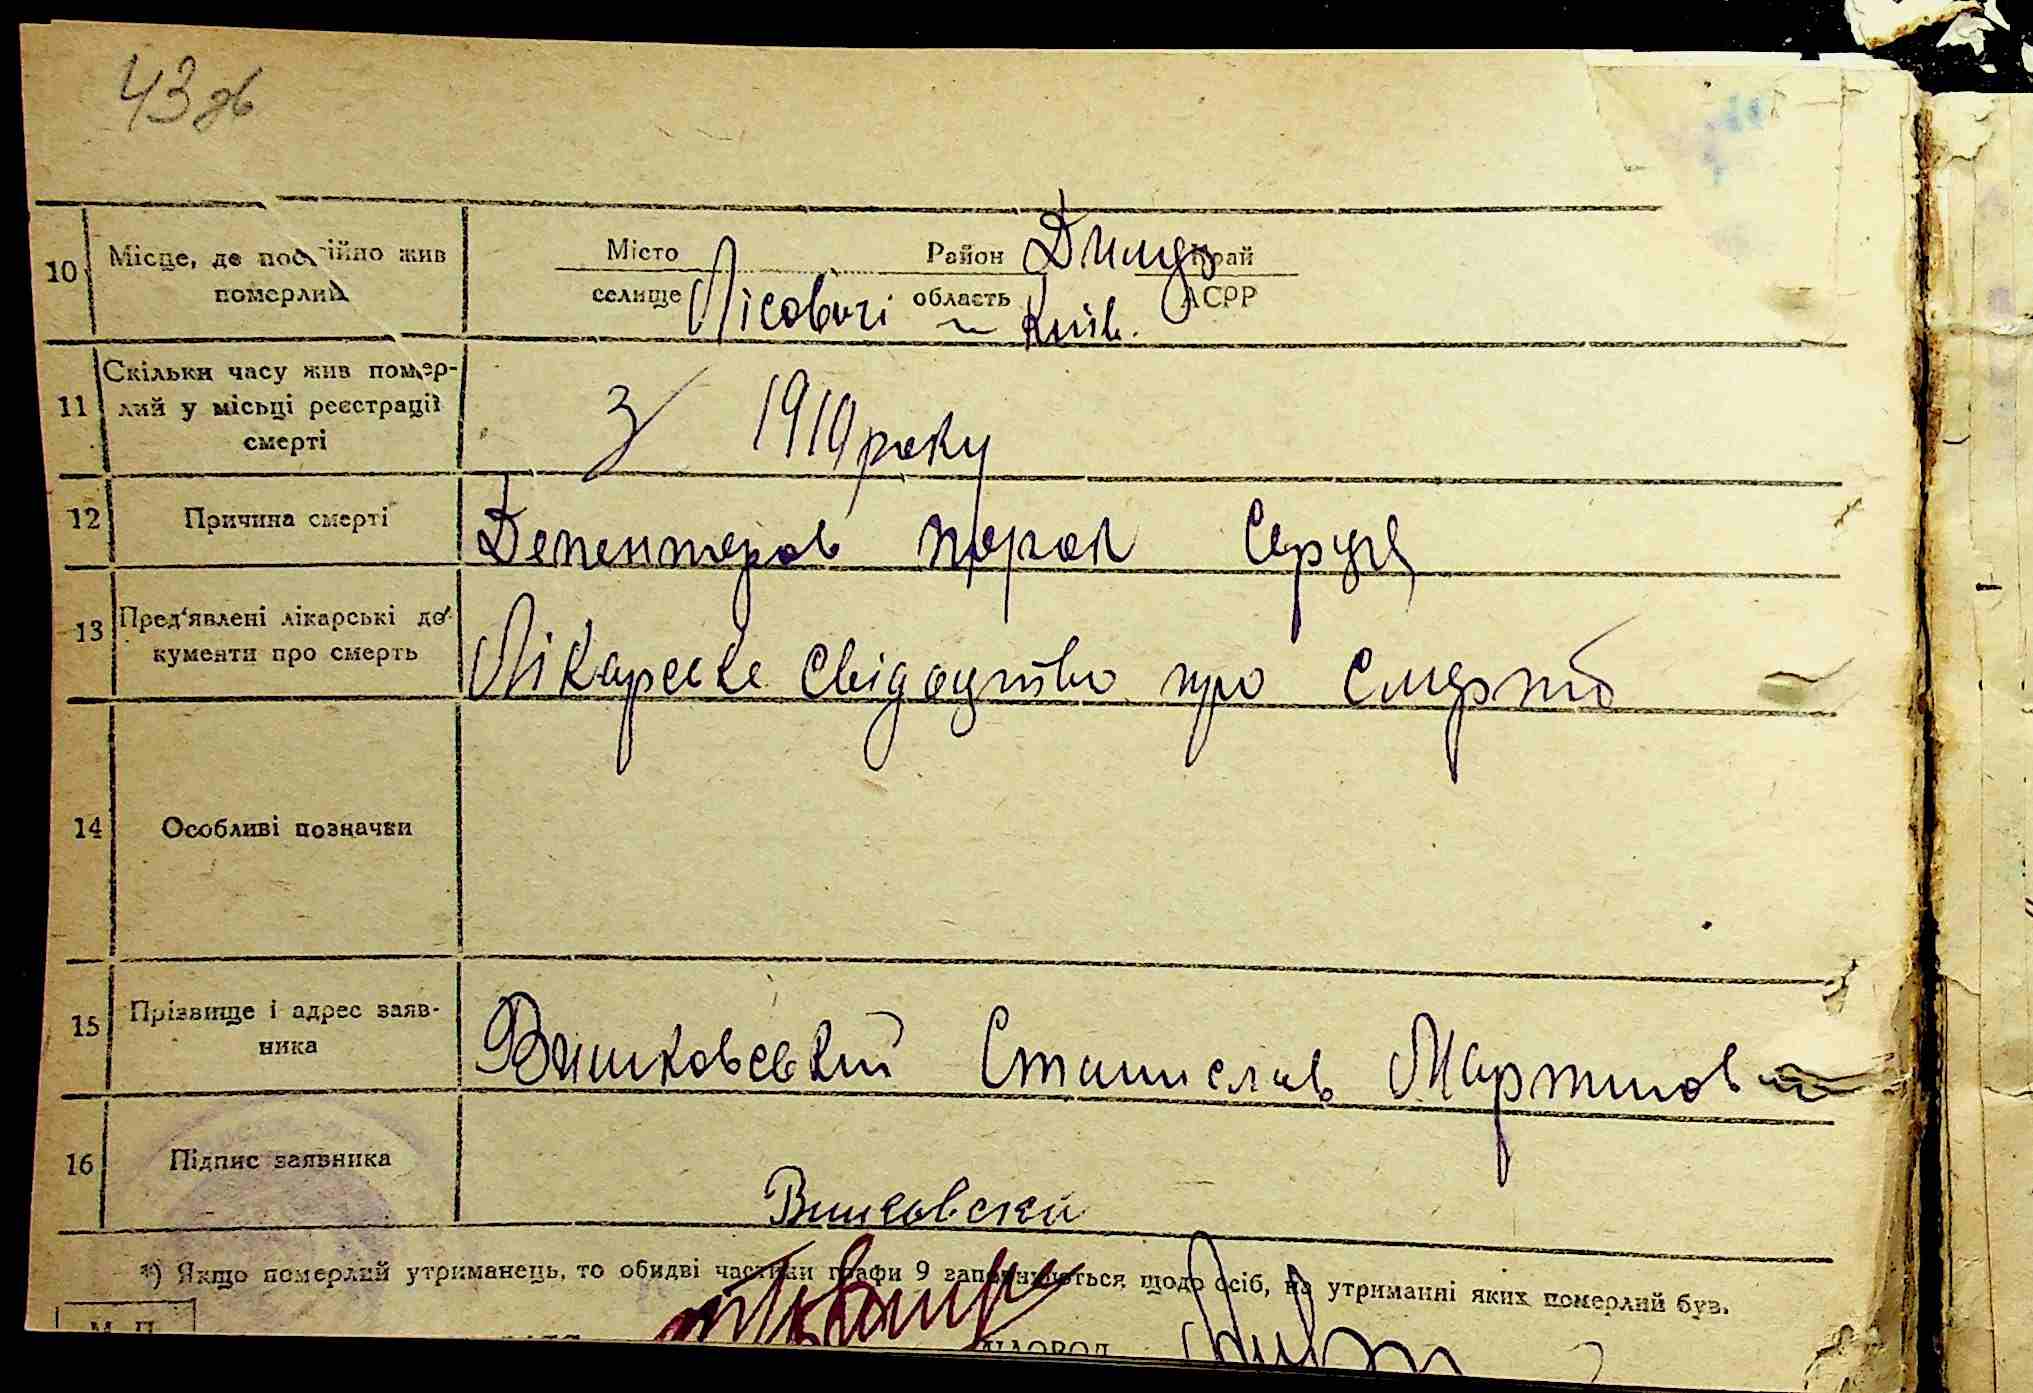 43 зв
10 Місце, де постійно жив померлий
Місто Район Димер Край
селище Лісовичі область Київ. АСРР
11 Скільки часу жив помер-
лий у місьці реєстрації
смерті
З 1910 року
12 Причина смерті
Декенсиров порок серця
13 Пред'явлені лікарські до-
кументи про смерть
Лікареске свідоцтво про смерть
14 Особливі позначки
15 Прізвище і адрес заяв-
ника
Вишковський Станислав Мартинов
16 Підпис заявника
Вишковски
*) Якщо померлий утриманець, то обидві частини графи 9 заповнюються щодо осіб, на утриманні яких померлий був.
М. П.